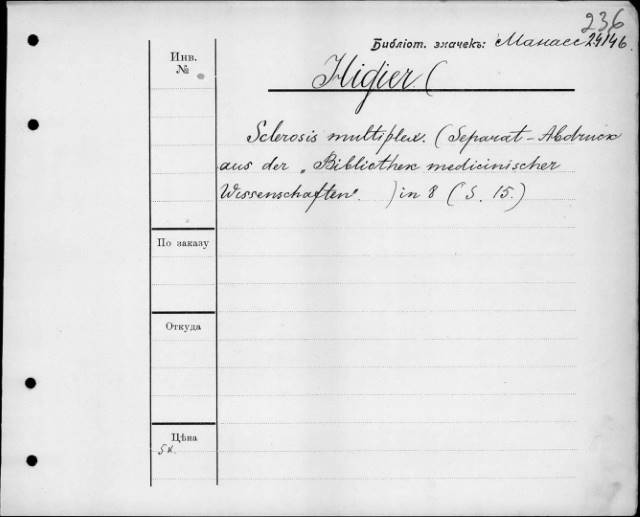 236
Библіот. значекъ: Манасс 24146.
Инв.
№
Higier (
Sclerosis multiplex. (Separat-Abdruck
aus der „Bibliothek medicinischer
Wissenschaften“. ) in 8 (S. 15.)
По заказу
Откуда
Цѣна
5к.